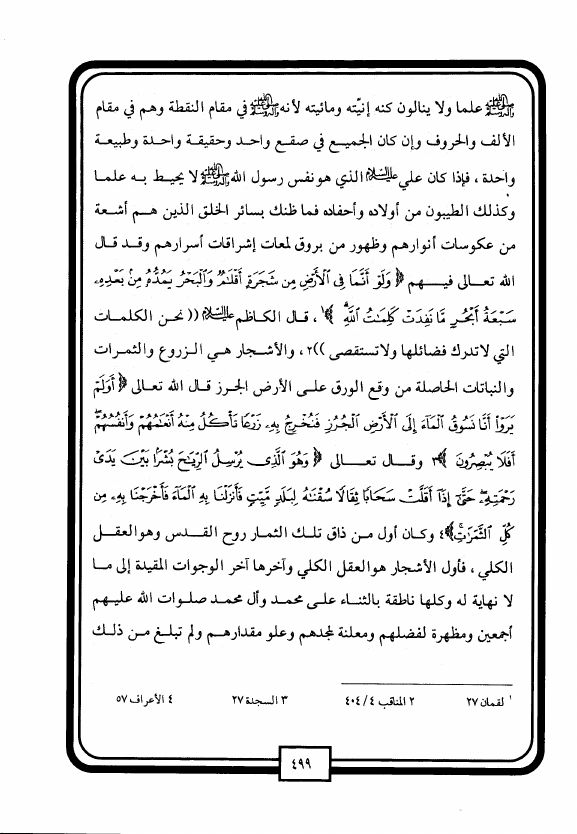 ﷺ علما ولا ينالون كنه إنيّته ومائيته لأنه ﷺ في مقام النقطة وهم في مقام
الألف والحروف وإن كان الجميع في صقع واحد وحقيقة واحدة وطبيعة
واحدة ، فإذا كان علي عليه السلام الذي هو نفس رسول الله ﷺ لا يحيط به علما
وكذلك الطيبون من أولاده وأحفاده فما ظنك بسائر الخلق الذين هم أشعة
من عكوسات أنوارهم وظهور من بروق لمعات إشراقات أسرارهم وقد قال
الله تعالى فيهم ﴿ وَلَوْ أَنَّمَا فِى ٱلْأَرْضِ مِن شَجَرَةٍ أَقْلَٰمٌ وَٱلْبَحْرُ يَمُدُّهُۥ مِنۢ بَعْدِهِۦ
سَبْعَةُ أَبْحُرٍ مَّا نَفِدَتْ كَلِمَٰتُ ٱللَّهِ ﴾١ ، قال الكاظم عليه السلام (( نحن الكلمات
التي لا تدرك فضائلها ولا تستقصى ))٢ ، والأشجار هي الزروع والثمرات
والنباتات الحاصلة من وقع الورق على الأرض الجرز قال الله تعالى ﴿ أَوَلَمْ
يَرَوْا۟ أَنَّا نَسُوقُ ٱلْمَآءَ إِلَى ٱلْأَرْضِ ٱلْجُرُزِ فَنُخْرِجُ بِهِۦ زَرْعًا تَأْكُلُ مِنْهُ أَنْعَٰمُهُمْ وَأَنفُسُهُمْ
أَفَلَا يُبْصِرُونَ ﴾٣ وقال تعالى ﴿ وَهُوَ ٱلَّذِى يُرْسِلُ ٱلرِّيَٰحَ بُشْرًۢا بَيْنَ يَدَىْ
رَحْمَتِهِۦ حَتَّىٰٓ إِذَآ أَقَلَّتْ سَحَابًا ثِقَالًا سُقْنَٰهُ لِبَلَدٍ مَّيِّتٍ فَأَنزَلْنَا بِهِ ٱلْمَآءَ فَأَخْرَجْنَا بِهِۦ مِن
كُلِّ ٱلثَّمَرَٰتِ ﴾٤ وكان أول من ذاق تلك الثمار روح القدس وهو العقل
الكلي ، فأول الأشجار هو العقل الكلي وآخرها آخر الوجوات المقيدة إلى ما
لا نهاية له وكلها ناطقة بالثناء على محمد وأل محمد صلوات الله عليهم
أجمعين ومظهرة لفضلهم ومعلنة لمجدهم وعلو مقدارهم ولم تبلغ من ذلك
١ لقمان ٢٧ ٢ المناقب ٤/ ٤٠٤ ٣ السجدة ٢٧ ٤ الأعراف ٥٧
٤٩٩